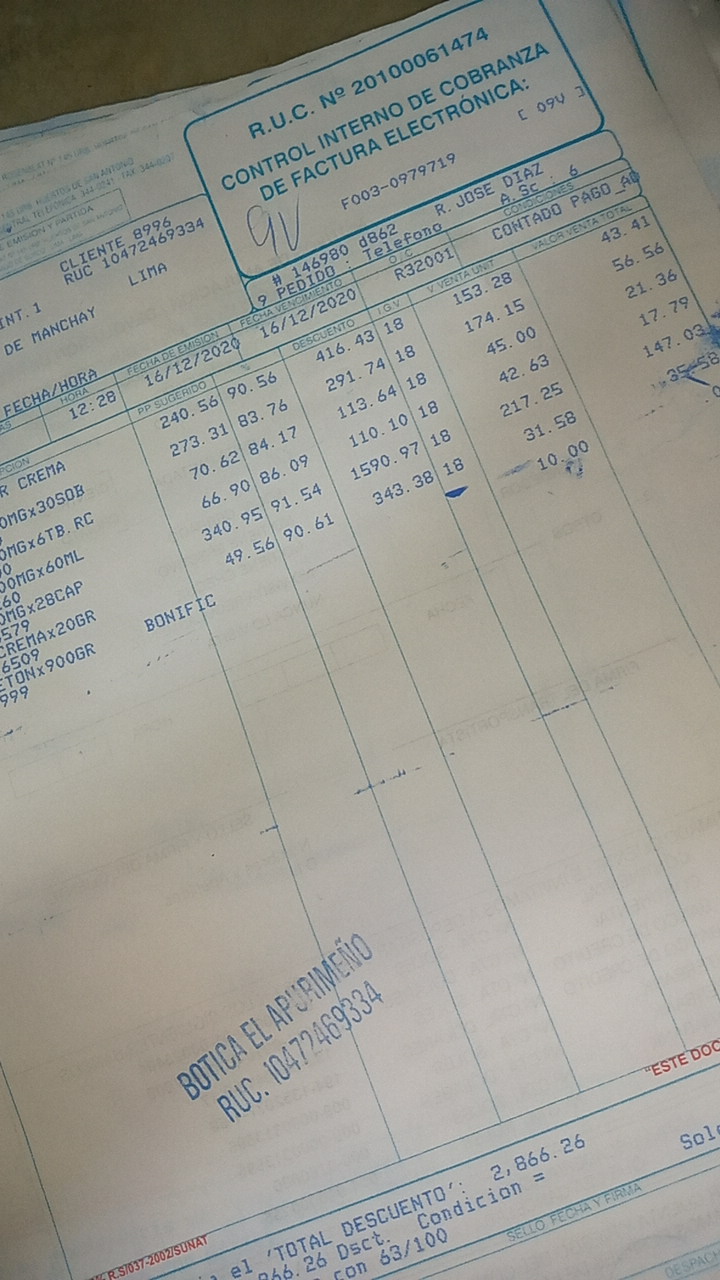 R.U.C. Nº 20100061474
CONTROL INTERNO DE COBRANZA
DE FACTURA ELECTRÓNICA:
[ 09V ]
F003-0979719
9V
CLIENTE 8996
RUC 10472469334
INT. 1 LIMA
DE MANCHAY
# 146980 d862 R. JOSE DIAZ
9 PEDIDO : Telefono A.Sc : 6
FECHA/HORA
HORA
12:28
FECHA DE EMISIÓN
16/12/2020
FECHA VENCIMIENTO
16/12/2020
O / C
R32001
CONDICIONES
CONTADO PAGO AD
PP SUGERIDO % DESCUENTO I.G.V. V.VENTA UNIT VALOR VENTA TOTAL
R CREMA 240.56 90.56 416.43 18 153.28 43.41
0MGx30SOB 273.31 83.76 291.74 18 174.15 56.56
0MGx6TB.RC 70.62 84.17 113.64 18 45.00 21.36
00MGx60ML 66.90 86.09 110.10 18 42.63 17.79
0MGx28CAP 340.95 91.54 1590.97 18 217.25 147.03
CREMAx20GR 49.56 90.61 343.38 18 31.58 35.58
6509
ETONx900GR BONIFIC 10.00
999
BOTICA EL APURIMEÑO
RUC. 10472469334
"ESTE DOC
R.S/037-2002/SUNAT
el 'TOTAL DESCUENTO': 2,866.26
866.26 Dsct. Condicion =
con 63/100
SELLO, FECHA Y FIRMA
DESPACH